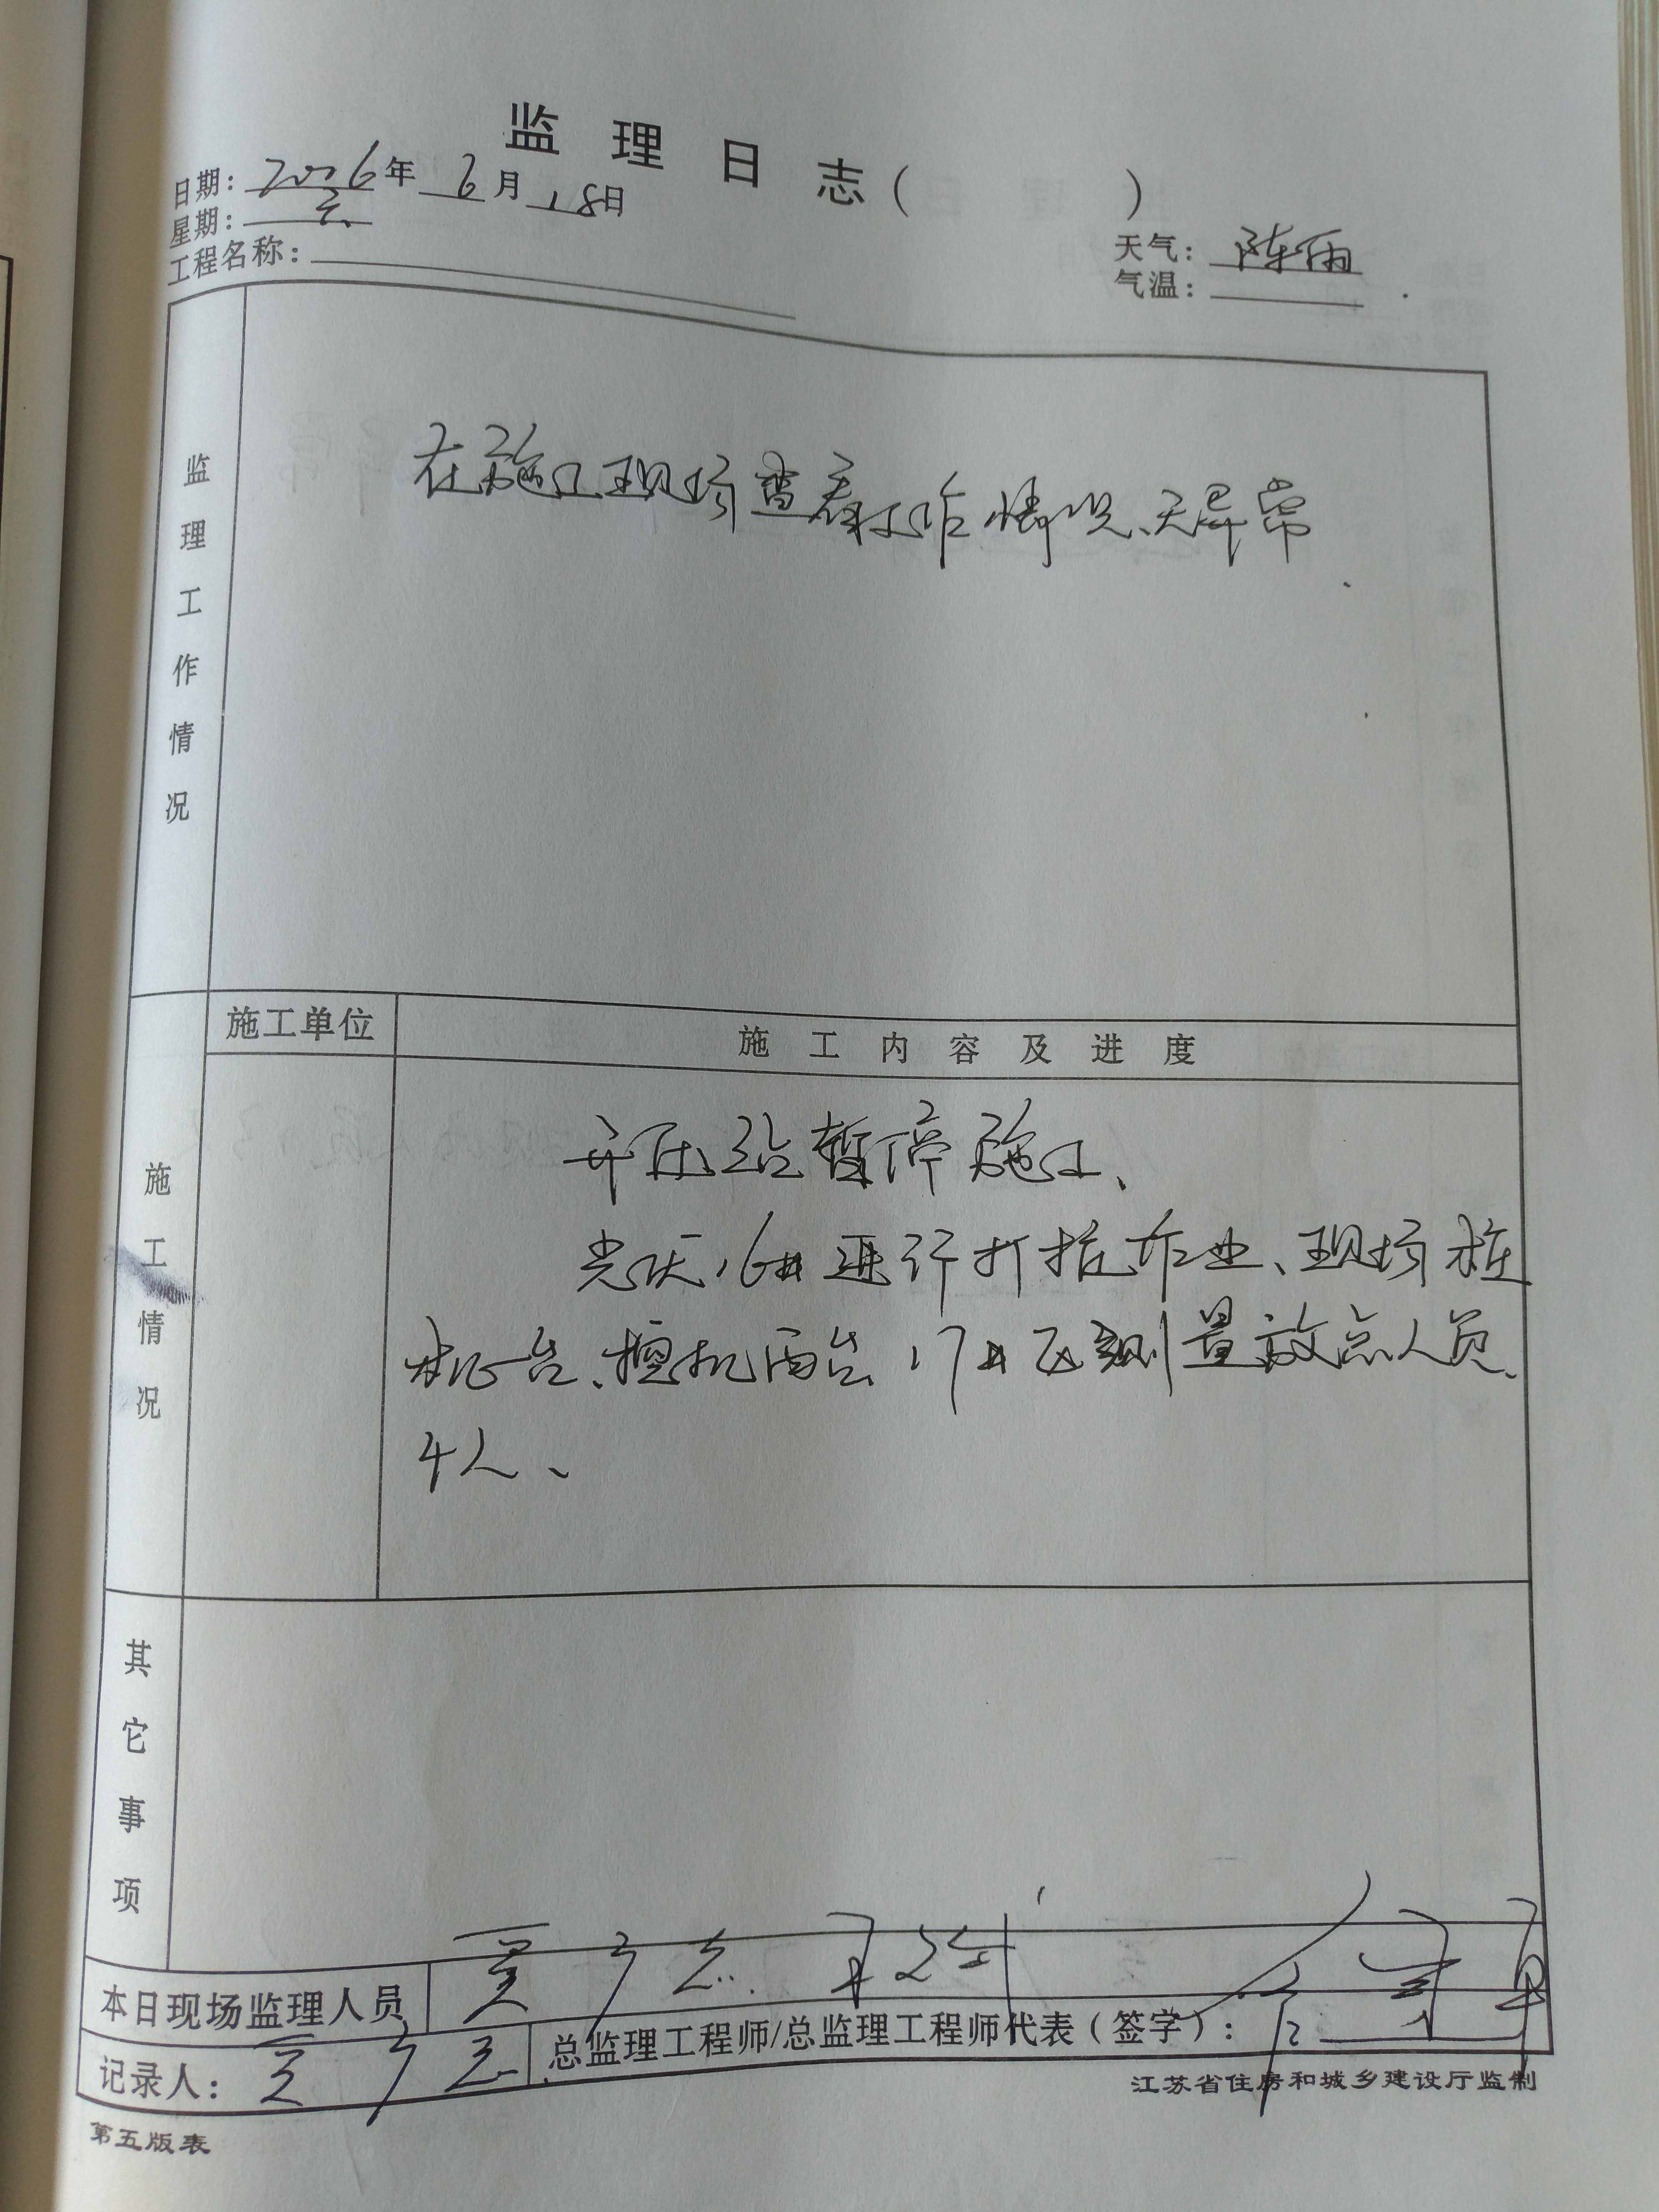 监理日志(      )
日期: 2026年 6月 18日
星期:
天气: 阵雨
工程名称:
气温:
监理工作情况
在施工现场查看工作情况、无异常
施工情况
施工单位
施工内容及进度
升压站暂停施工、
光伏 16# 进行打桩作业、现场桩
机一台、挖机两台 17# 区测量放点人员、
4人、
其它事项
本日现场监理人员
记录人:
总监理工程师/总监理工程师代表(签字):
江苏省住房和城乡建设厅监制
第五版表